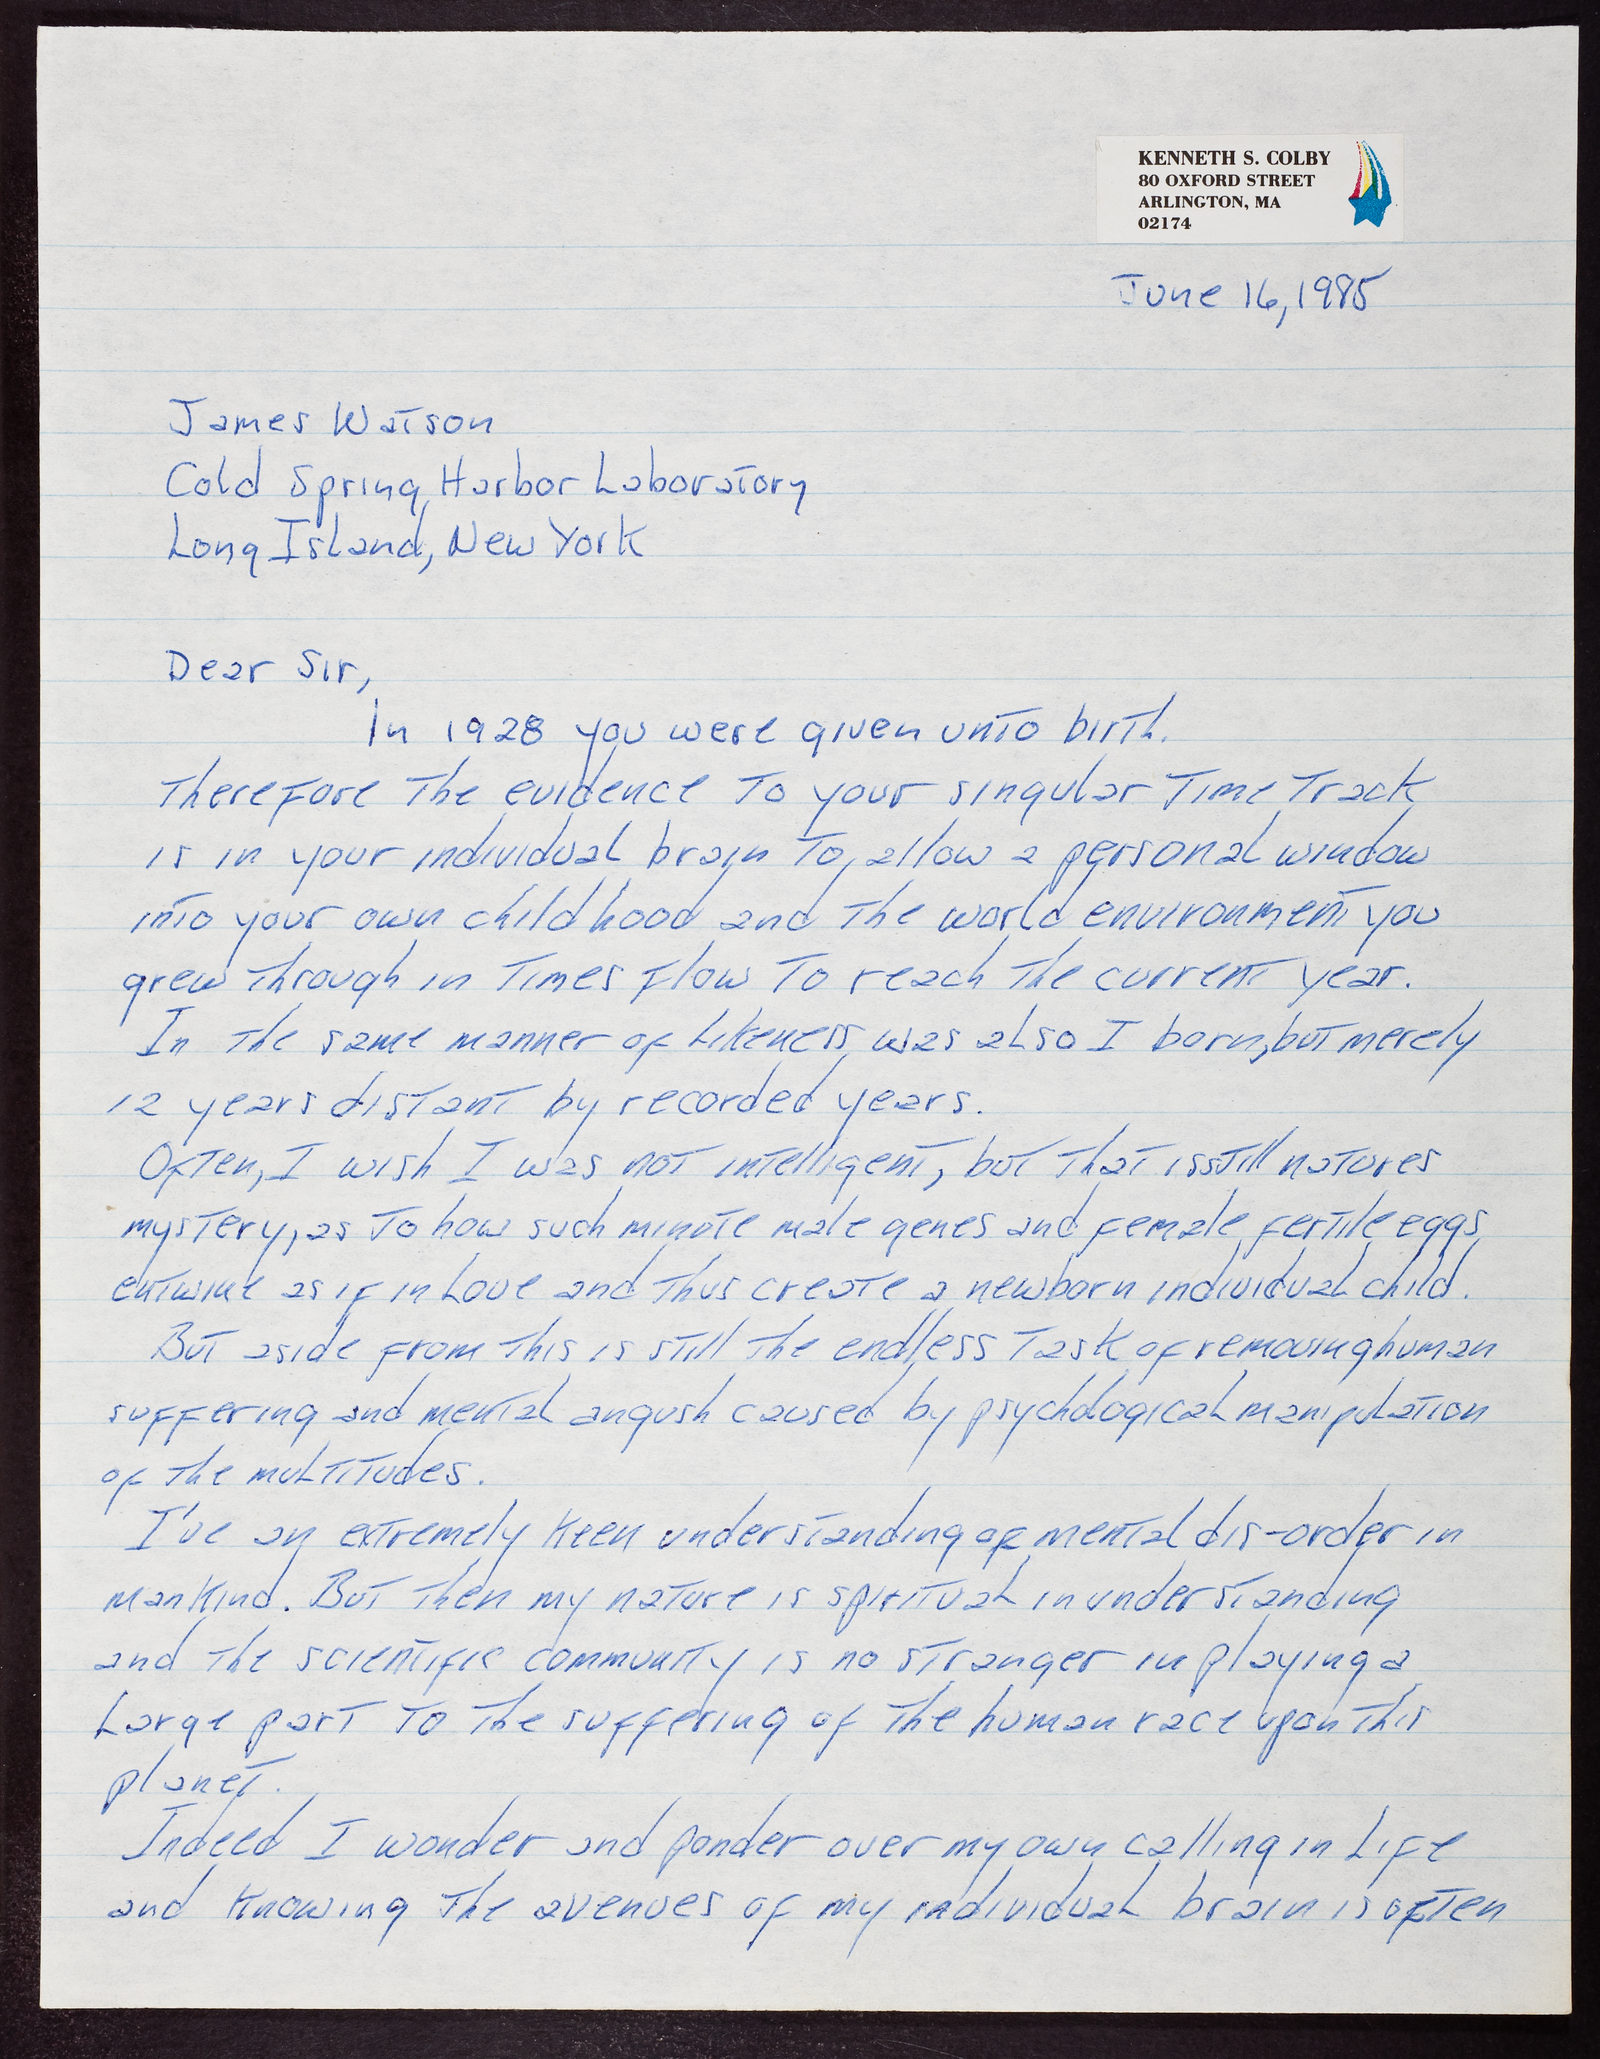 KENNETH S. COLBY
80 OXFORD STREET
ARLINGTON, MA
02174
June 16, 1985
James Watson
Cold Spring Harbor Laboratory
Long Island, New York
Dear Sir,
In 1928 you were given unto birth.
Therefore the evidence to your singular time track
is in your individual brain to, allow a personal window
into your own childhood and the world environment you
grew through in times flow to reach the current year.
In the same manner of likeness was also I born, but merely
12 years distant by recorded years.
Often, I wish I was not intelligent, but that is still natures
mystery, as to how such minute male genes and female fertile eggs
entwine as if in love and thus create a newborn individual child.
But aside from this is still the endless task of removing human
suffering and mental angush caused by psychological manipulation
of the multitudes.
I've an extremely keen understanding of mental dis-order in
mankind. But then my nature is spiritual in understanding
and the scientific community is no stranger in playing a
large part to the suffering of the human race upon this
planet.
Indeed I wonder and ponder over my own calling in life
and knowing the avenues of my individual brain is often